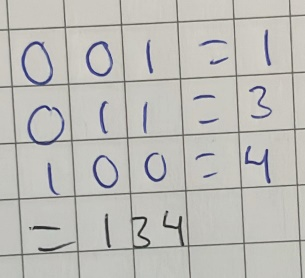 0 0 1 = 1
0 1 1 = 3
1 0 0 = 4
= 134